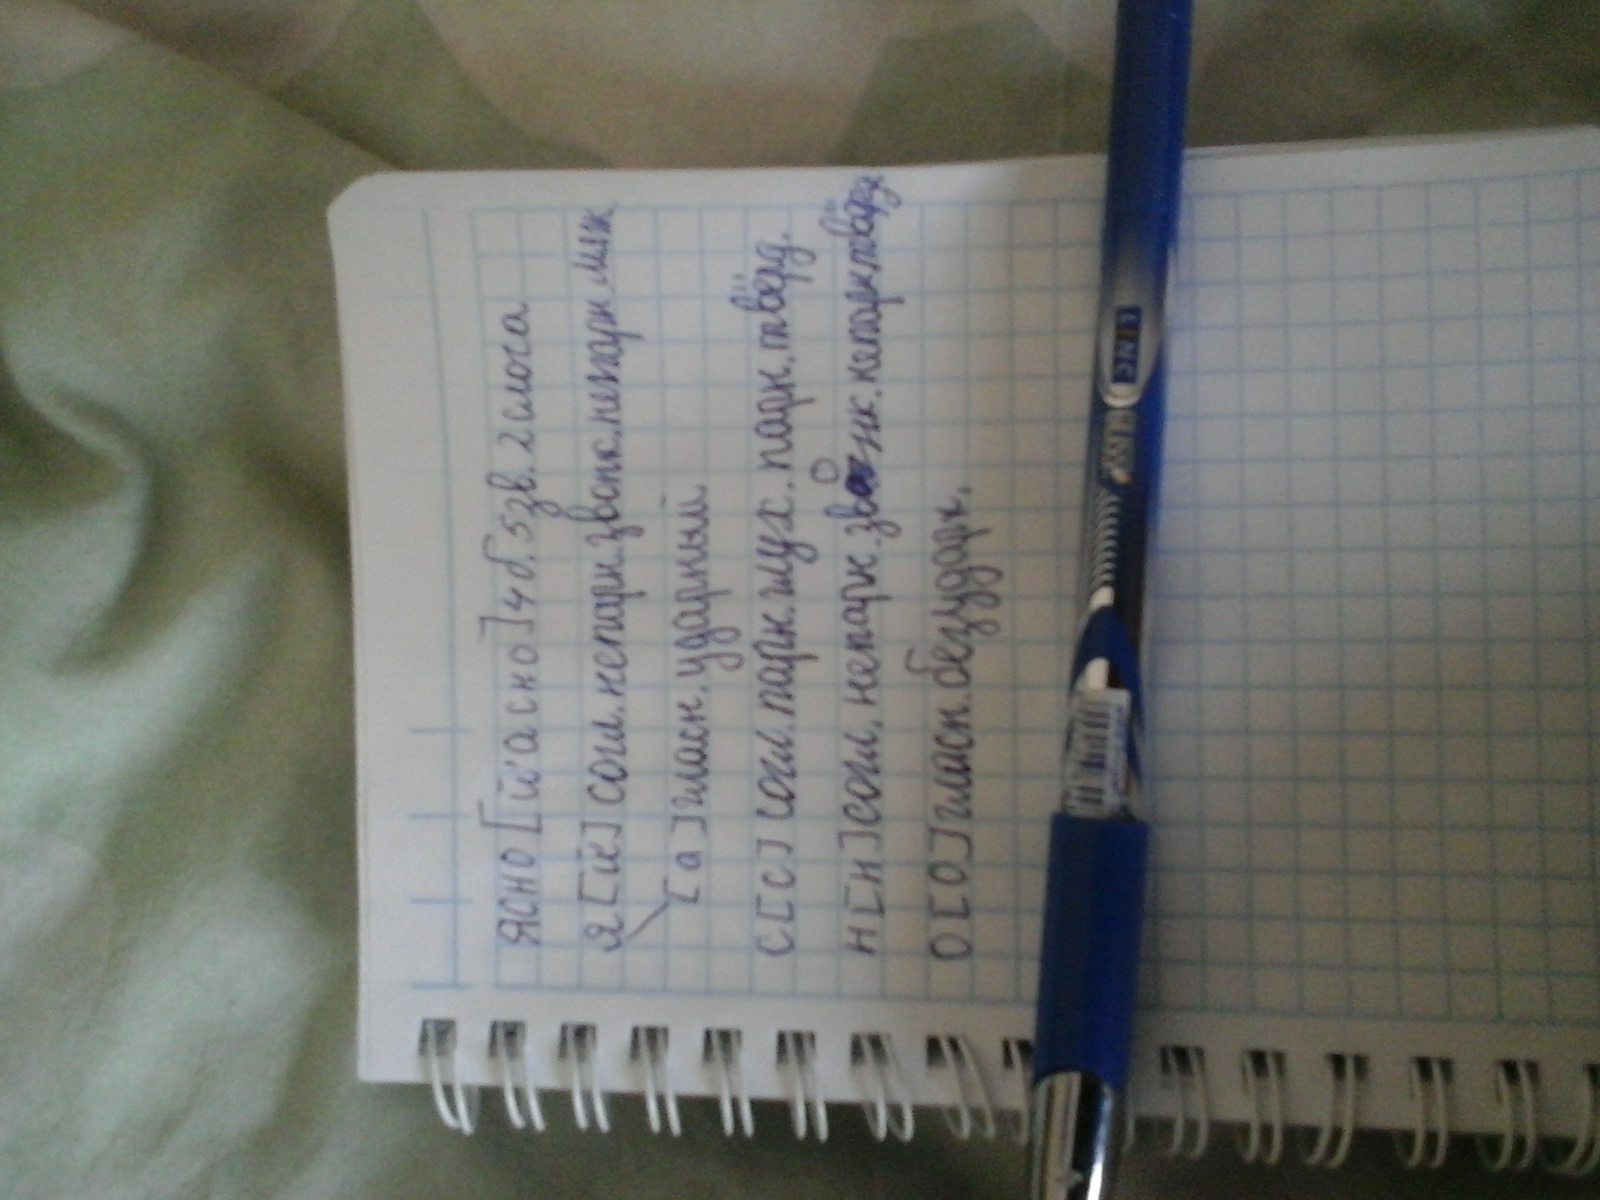 ЯСНО [й'асно] 4 б. 5 зв. 2 слога
Я [й'] согл. непарн. звонк. непарн. мяк
[а] гласн. ударный.
С [С] согл. парн. глух. парн. твёрд.
Н [Н] согл. непарн. звонк. непарн. твёрд
О [О] гласн. безударн.
LINC